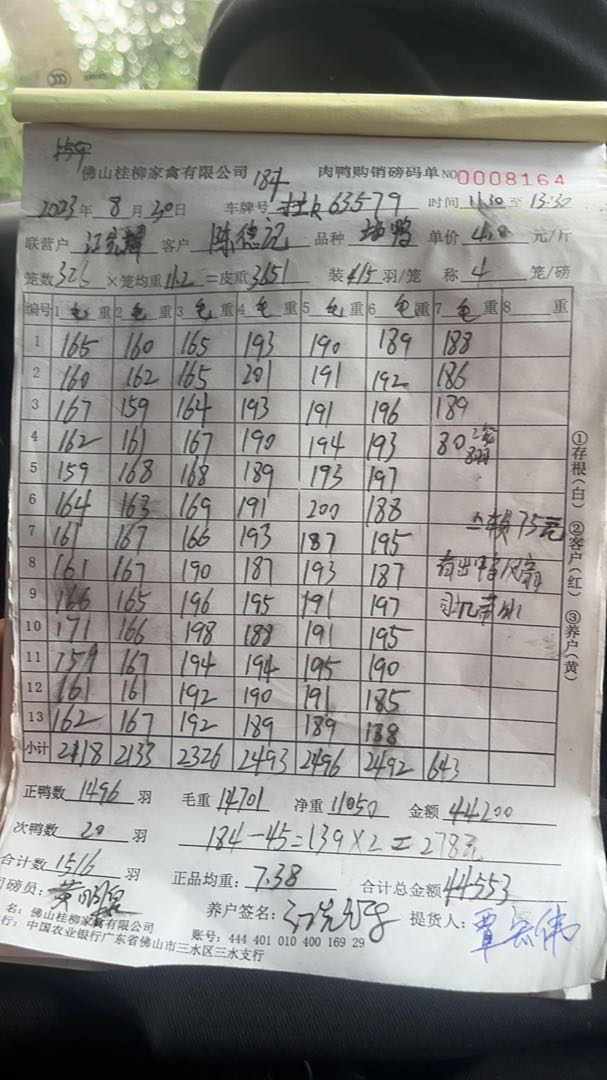 佛山桂柳家禽有限公司 184 肉鸭购销磅码单 NO 0008164
2023年 8月30日 车牌号 63579 时间 11:30 至 13:30
联营户 客户 陈德记 品种 鸭 单价 元/斤
笼数 326 ×笼均重 11.2 =皮重 3651 装 羽/笼 称 4 笼/磅
编号 1 毛重 2 毛重 3 毛重 4 毛重 5 毛重 6 毛重 7 毛重 8 重
1 165 160 165 193 190 189 188
2 160 162 165 201 191 192 186
3 167 159 164 193 191 196 189
4 162 161 167 190 194 193 80
5 159 168 168 189 193 197
6 164 163 169 191 200 188
7 161 167 166 193 187 195 75元
8 161 167 190 187 193 187
9 166 165 196 195 191 197
10 171 166 198 188 191 195
11 159 167 194 194 195 190
12 161 161 192 190 191 185
13 162 167 192 189 189 188
小计 2118 2133 2326 2493 2496 2492 643
①存根(白) ②客户(红) ③养户(黄)
正鸭数 1496 羽 毛重 14701 净重 11050 金额 44200
次鸭数 20 羽 184-45=139×2=278元
合计数 1516 羽 正品均重: 7.38 合计总金额 44553
司磅员: 养户签名: 提货人: 覃宏伟
名: 佛山桂柳家禽有限公司 账号: 444 401 010 400 169 29
行: 中国农业银行广东省佛山市三水区三水支行